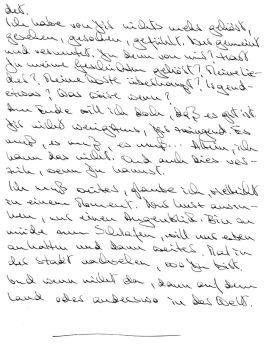 det.
Ich habe von Dir nichts mehr gehört,
gesehen, gerochen, gefühlt. Nur gemeint
und vermutet. Du denn von mir? Hast
Du meine Geschichten gehört? Meine Lie-
der? Meine Texte überhaupt? Irgend-
etwas? Was wäre wenn?
Am Ende will ich doch, daß es gut ist
Dir nicht wenigstens, Es
muß, es muß, es muß... Allein, ich
kann das nicht. Und auch dies ver-
zeih, wenn Du kannst.
Ich muß weiter, glaube ich, vielleicht
zu einem Moment. Nur kurz ausru-
hen, nur einen Augenblick. Bin so
müde zum Schlafen, will nur eben
anhalten und dann weiter. Mal in
der Stadt nachsehen, wo Du bist.
Und wenn nicht da, dann auf dem
Land oder anderswo in der Welt.